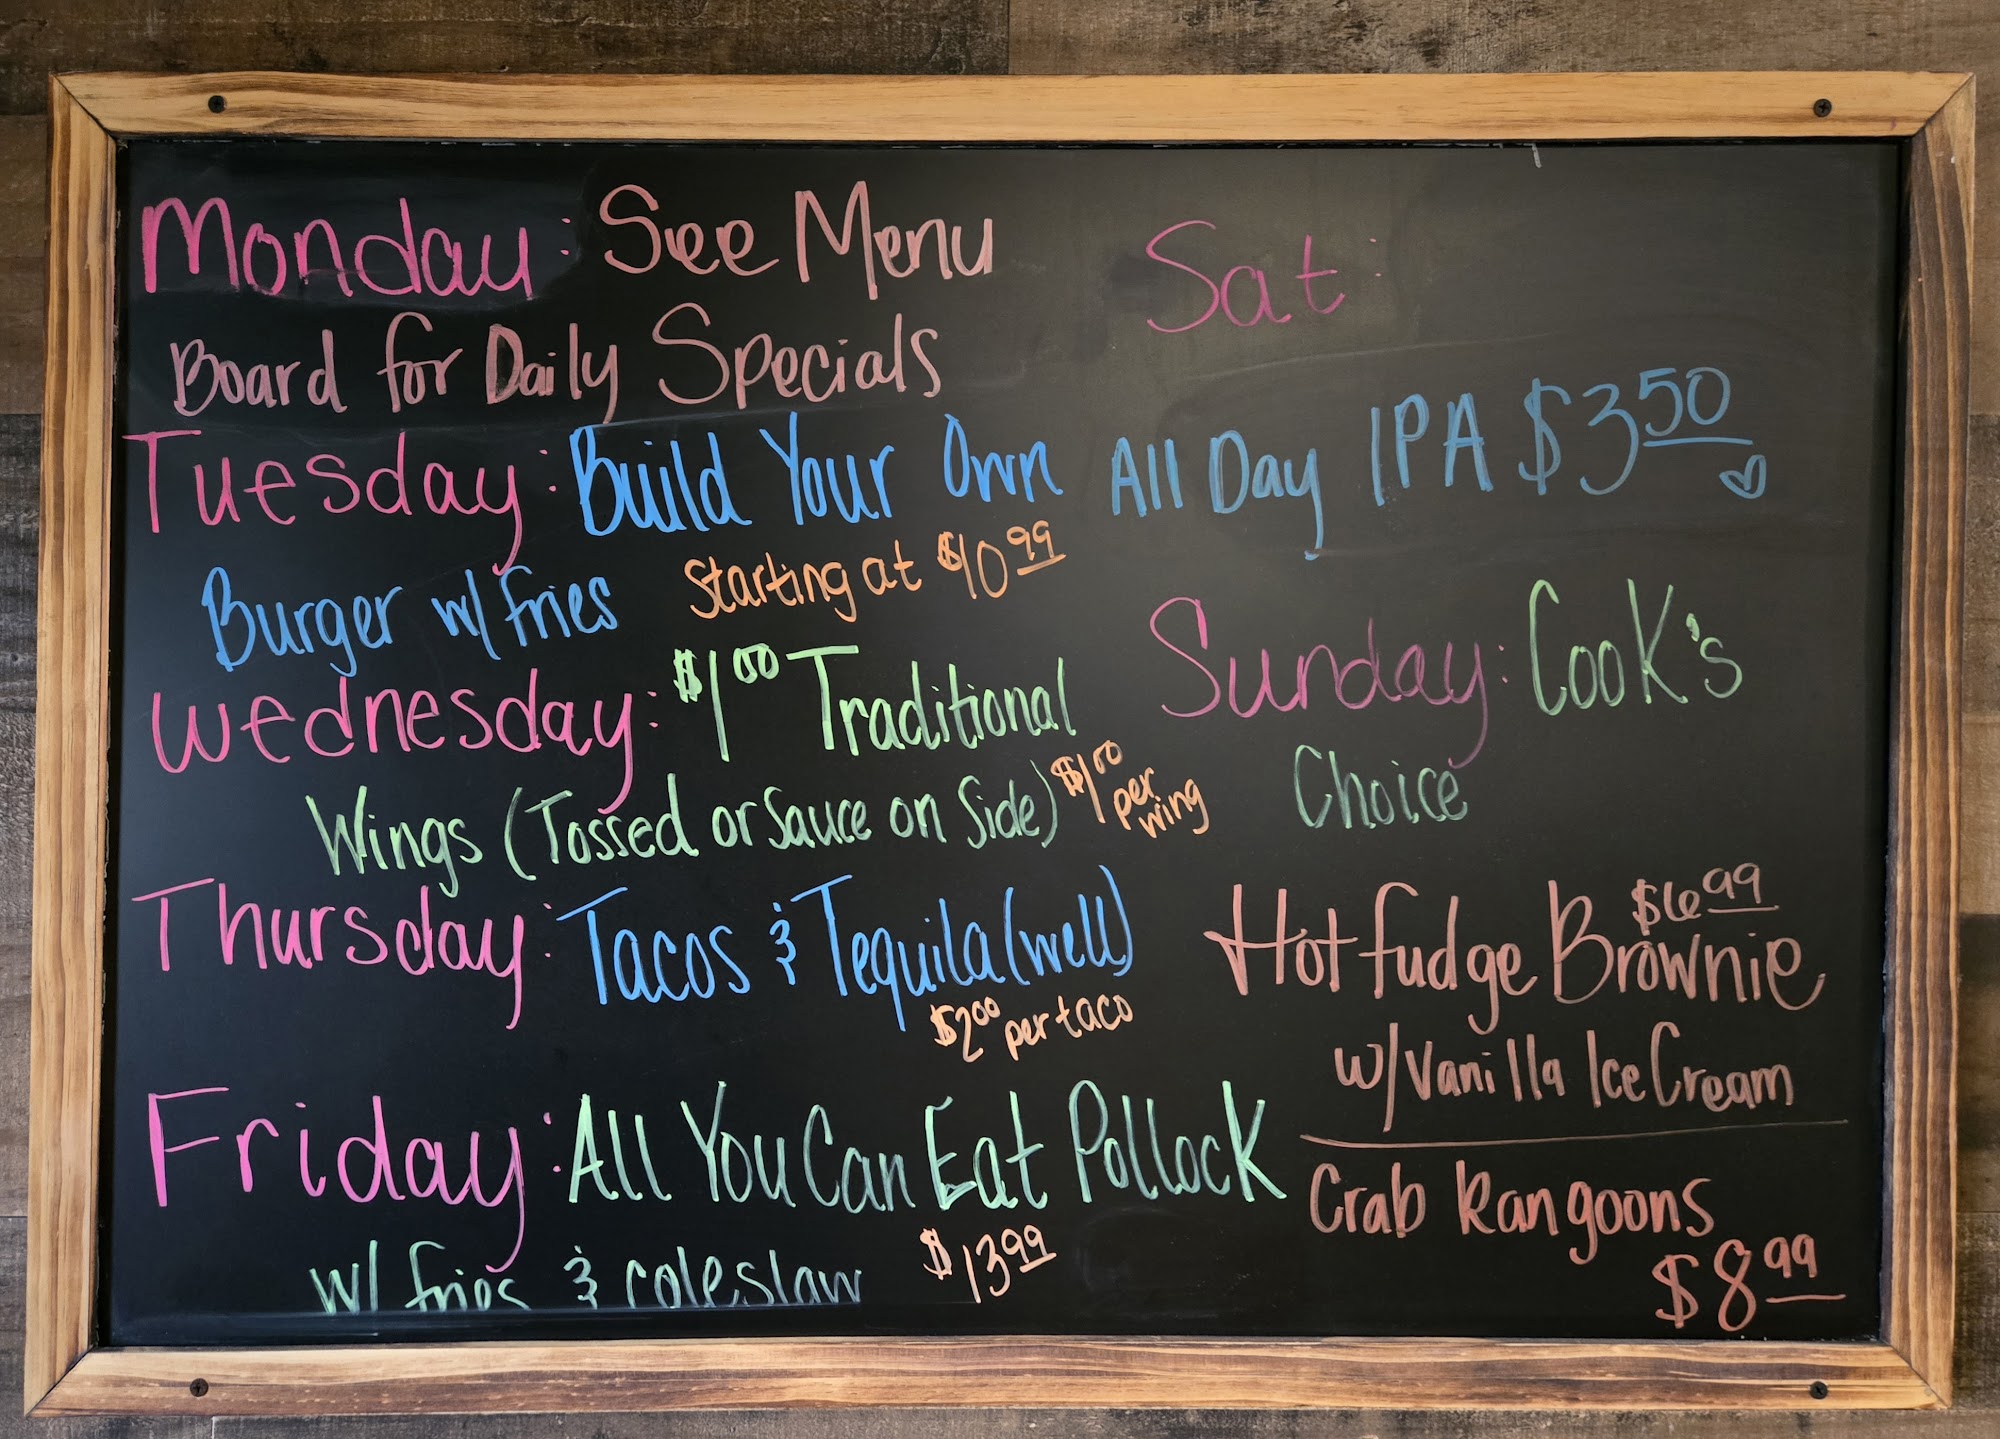 Monday: See Menu
Board for Daily Specials
Tuesday: Build Your Own
Burger w/ fries Starting at $10.99
Wednesday: $1.00 Traditional
Wings (Tossed or Sauce on Side) $1.00 per wing
Thursday: Tacos & Tequila (well)
$2.00 per taco
Friday: All You Can Eat Pollock
w/ fries & coleslaw $13.99
Sat:
All Day IPA $3.50
Sunday: Cook's
Choice
Hot fudge Brownie $6.99
w/ Vanilla Ice Cream
Crab Rangoons
$8.99